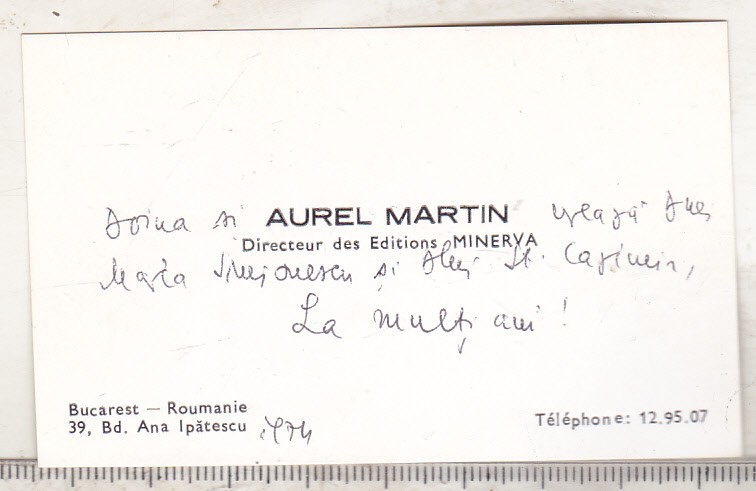 Doina si AUREL MARTIN urează Dnei
Directeur des Editions MINERVA
Maria Simionescu și Dlui St. Cazimir,
La mulți ani!
Bucarest — Roumanie
39, Bd. Ana Ipătescu 1974
Téléphone: 12.95.07